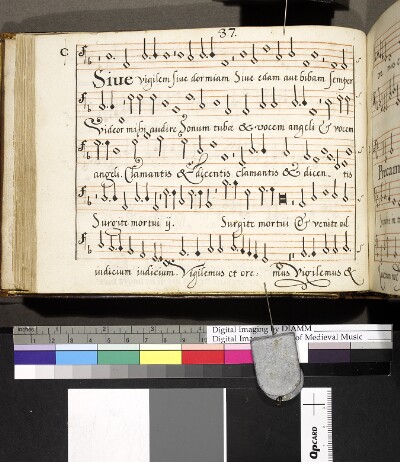 37.
C
Siue vigilem siue dormiam Siue edam aut bibam semper
Videor mihi audire Sonum tubæ & vocem angeli & vocem
angeli. Clamantis & dicentis clamantis & dicen. tis
Surgite mortui ij. Surgite mortui & venite ad
iudicium iudicium. Vigilemus et ore: mus Vigilemus &
Precam
inches
1 2
Digital Imaging by DIAMM
Digital of Medieval Music
QPCARD